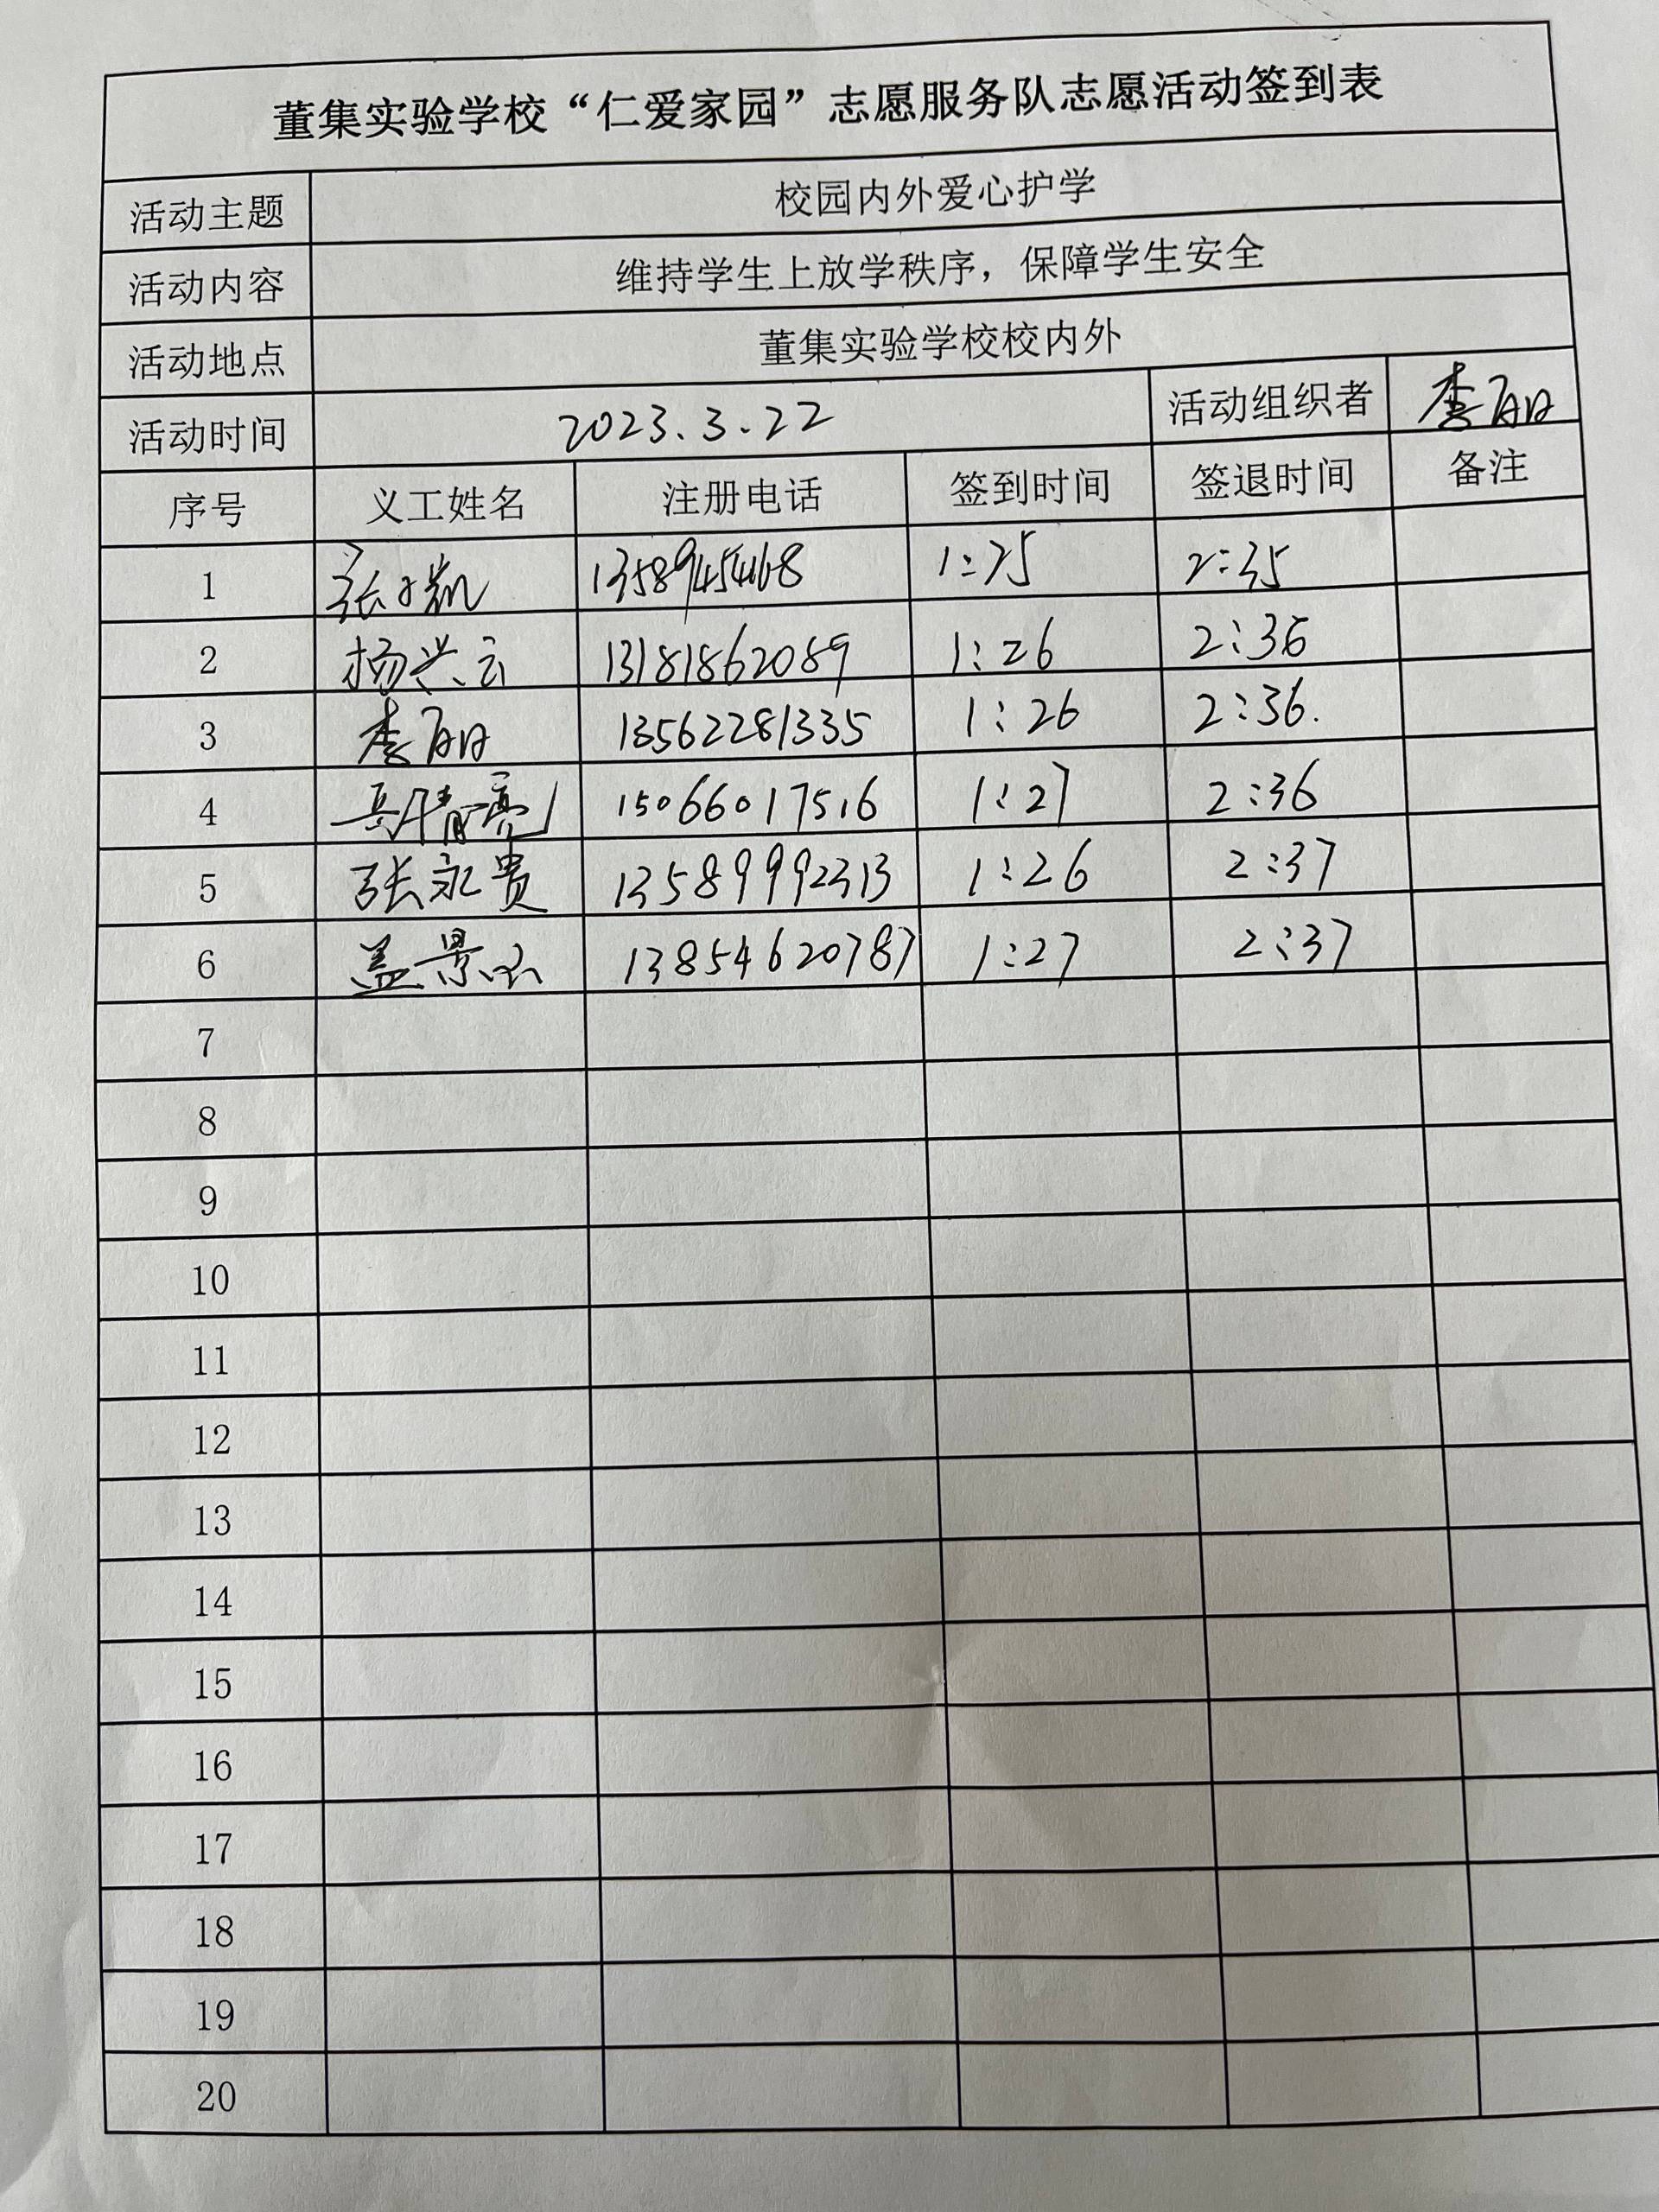 董集实验学校“仁爱家园”志愿服务队志愿活动签到表
活动主题 校园内外爱心护学
活动内容 维持学生上放学秩序，保障学生安全
活动地点 董集实验学校校内外
活动时间 2023.3.22 活动组织者 李丽
序号 义工姓名 注册电话 签到时间 签退时间 备注
1 13589454168 1:25 2:35
2 杨兴云 13181862089 1:26 2:36
3 李丽 13562281335 1:26 2:36.
4 15066017516 1:27 2:36
5 张永贵 13589992313 1:26 2:37
6 盖景 13854620787 1:27 2:37
7
8
9
10
11
12
13
14
15
16
17
18
19
20